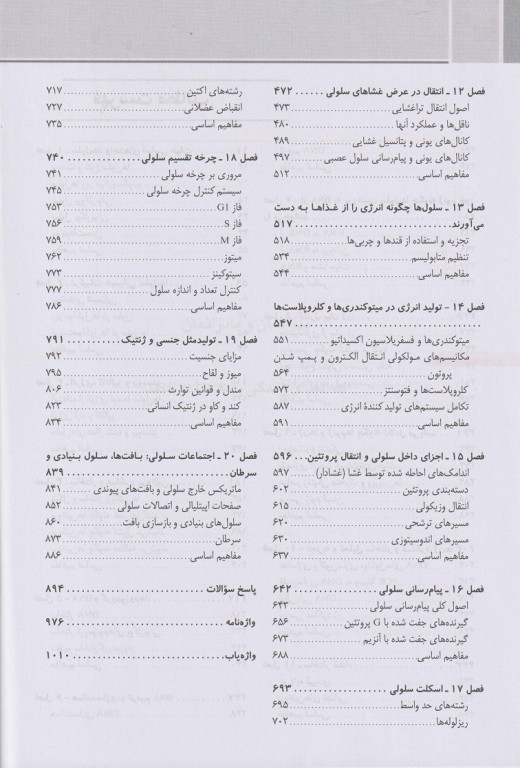 فصل ۱۲ ـ انتقال در عرض غشاهای سلولی ...... ۴۷۲
اصول انتقال تراغشایی ...... ۴۷۳
ناقل‌ها و عملکرد آنها ...... ۴۸۰
کانال‌های یونی و پتانسیل غشایی ...... ۴۸۹
کانال‌های یونی و پیام‌رسانی سلول عصبی ...... ۴۹۷
مفاهیم اساسی ...... ۵۱۲
فصل ۱۳ ـ سلول‌ها چگونه انرژی را از غذاها به دست
می‌آورند ...... ۵۱۷
تجزیه و استفاده از قندها و چربی‌ها ...... ۵۱۸
تنظیم متابولیسم ...... ۵۳۴
مفاهیم اساسی ...... ۵۴۴
فصل ۱۴ - تولید انرژی در میتوکندری‌ها و کلروپلاست‌ها
...... ۵۴۷
میتوکندری‌ها و فسفریلاسیون اکسیداتیو ...... ۵۵۱
مکانیسم‌های مولکولی انتقال الکترون و پمپ شدن
پروتون ...... ۵۶۴
کلروپلاست‌ها و فتوسنتز ...... ۵۷۲
تکامل سیستم‌های تولید کنندهٔ انرژی ...... ۵۸۷
مفاهیم اساسی ...... ۵۹۱
فصل ۱۵ ـ اجزای داخل سلولی و انتقال پروتئین ...... ۵۹۶
اندامک‌های احاطه شده توسط غشا (غشادار) ...... ۵۹۷
دسته‌بندی پروتئین ...... ۶۰۲
انتقال وزیکولی ...... ۶۱۵
مسیرهای ترشحی ...... ۶۲۰
مسیرهای اندوسیتوزی ...... ۶۳۰
مفاهیم اساسی ...... ۶۳۷
فصل ۱۶ ـ پیام‌رسانی سلولی ...... ۶۴۲
اصول کلی پیام‌رسانی سلولی ...... ۶۴۳
گیرنده‌های جفت شده با G پروتئین ...... ۶۵۶
گیرنده‌های جفت شده با آنزیم ...... ۶۷۳
مفاهیم اساسی ...... ۶۸۸
فصل ۱۷ ـ اسکلت سلولی ...... ۶۹۳
رشته‌های حد واسط ...... ۶۹۵
ریزلوله‌ها ...... ۷۰۲
رشته‌های اکتین ...... ۷۱۷
انقباض عضلانی ...... ۷۲۷
مفاهیم اساسی ...... ۷۳۵
فصل ۱۸ ـ چرخه تقسیم سلولی ...... ۷۴۰
مروری بر چرخه سلولی ...... ۷۴۱
سیستم کنترل چرخه سلولی ...... ۷۴۵
فاز G1 ...... ۷۵۳
فاز S ...... ۷۵۶
فاز M ...... ۷۵۹
میتوز ...... ۷۶۲
سیتوکینز ...... ۷۷۳
کنترل تعداد و اندازه سلول ...... ۷۷۷
مفاهیم اساسی ...... ۷۸۶
فصل ۱۹ ـ تولیدمثل جنسی و ژنتیک ...... ۷۹۱
مزایای جنسیت ...... ۷۹۲
میوز و لقاح ...... ۷۹۵
مندل و قوانین توارث ...... ۸۰۶
کند و کاو در ژنتیک انسانی ...... ۸۲۳
مفاهیم اساسی ...... ۸۳۴
فصل ۲۰ ـ اجتماعات سلولی: بافت‌ها، سلول بنیادی و
سرطان ...... ۸۳۹
ماتریکس خارج سلولی و بافت‌های پیوندی ...... ۸۴۱
صفحات اپیتلیالی و اتصالات سلولی ...... ۸۵۲
سلول‌های بنیادی و بازسازی بافت ...... ۸۶۰
سرطان ...... ۸۷۳
مفاهیم اساسی ...... ۸۸۶
پاسخ سؤالات ...... ۸۹۴
واژه‌نامه ...... ۹۷۶
واژه‌یاب ...... ۱۰۱۰